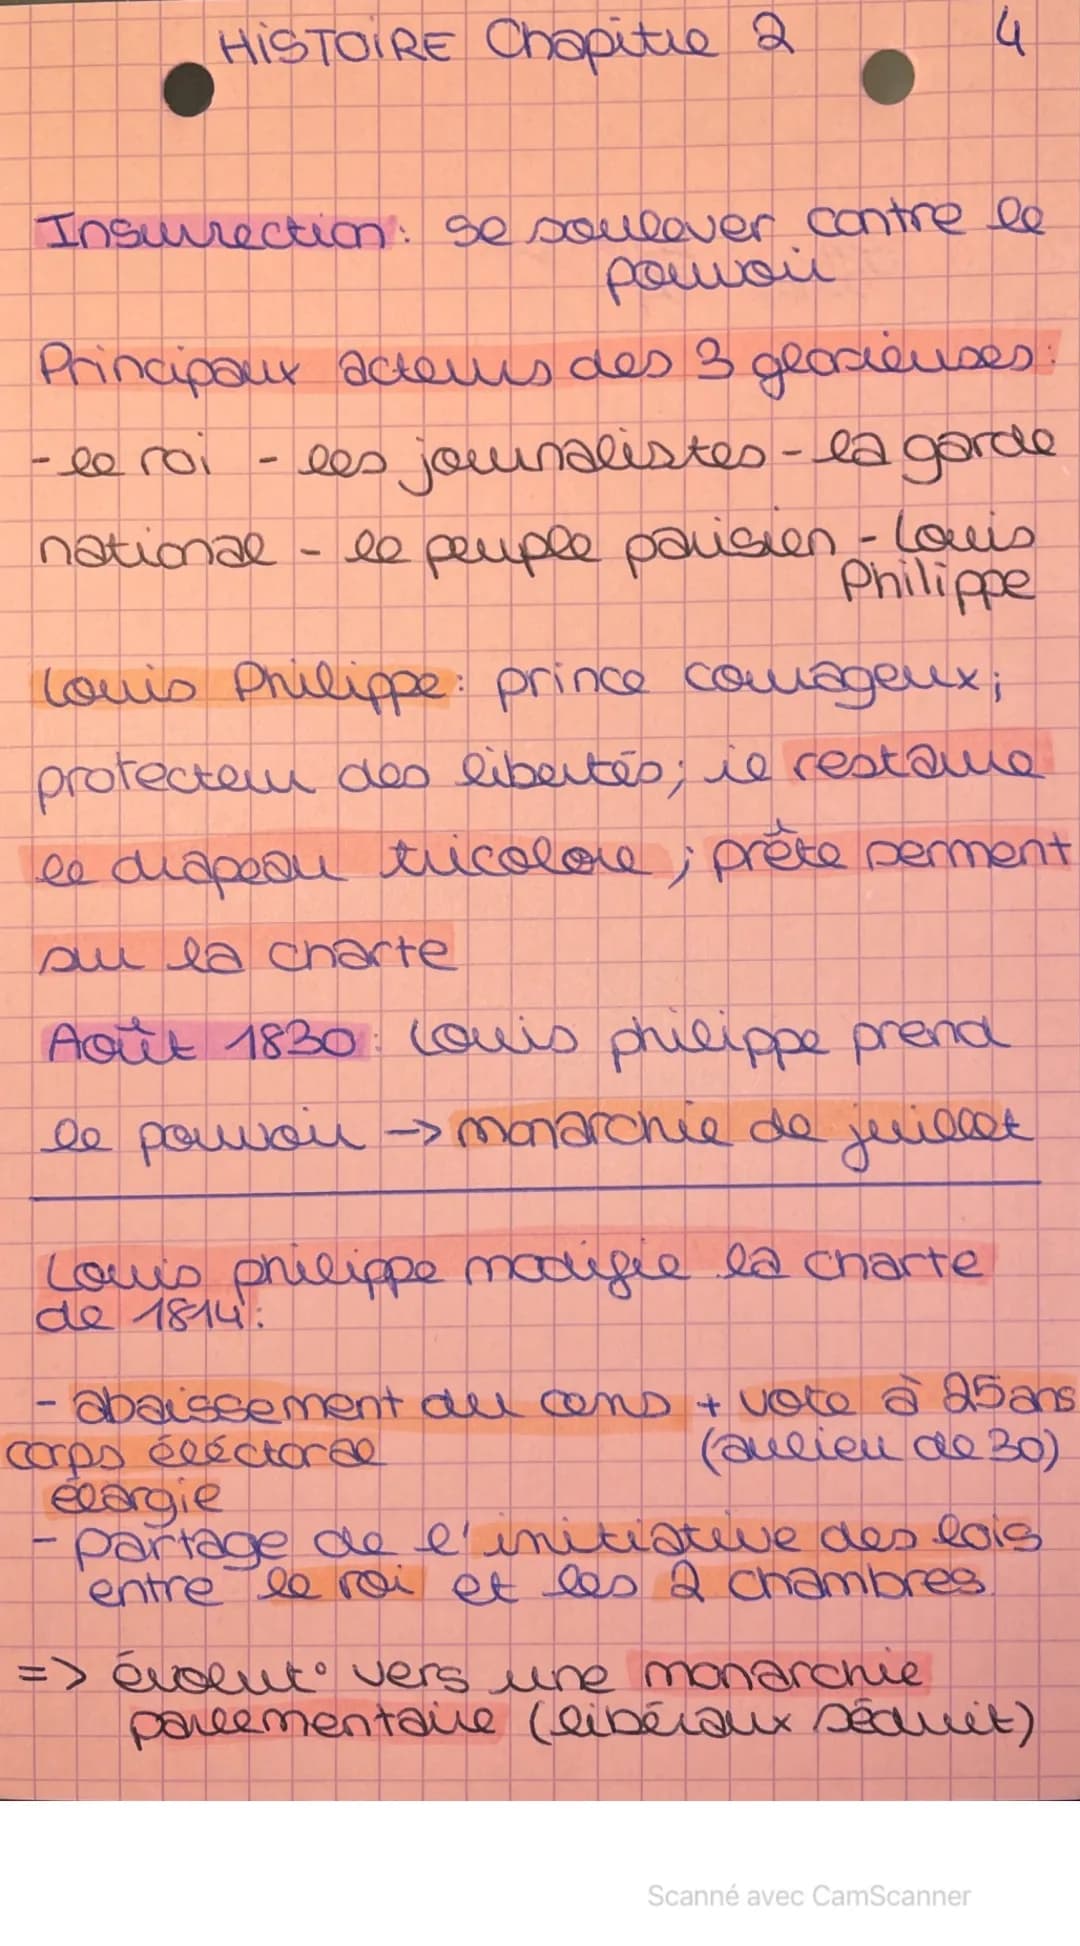 HISTOIRE Chapitre 2 4
Insurrection : se soulever contre le
pouvoir
Principaux acteurs des 3 glorieuses :
- le roi - les journalistes - la garde
national - le peuple parisien - Louis
Philippe
Louis Philippe : prince courageux ;
protecteur des libertés ; il restaure
le drapeau tricolore ; prête serment
sur la charte
Août 1830 : Louis philippe prend
le pouvoir -> monarchie de juillet
Louis philippe modifie la charte
de 1814 :
- abaissement du cens + vote à 25 ans
corps éléctoral (aulieu de 30)
élargie
- partage de l'initiative des lois
entre le roi et les 2 chambres.
=> évolut° vers une monarchie
parlementaire (libéraux séduit)
Scanné avec CamScanner